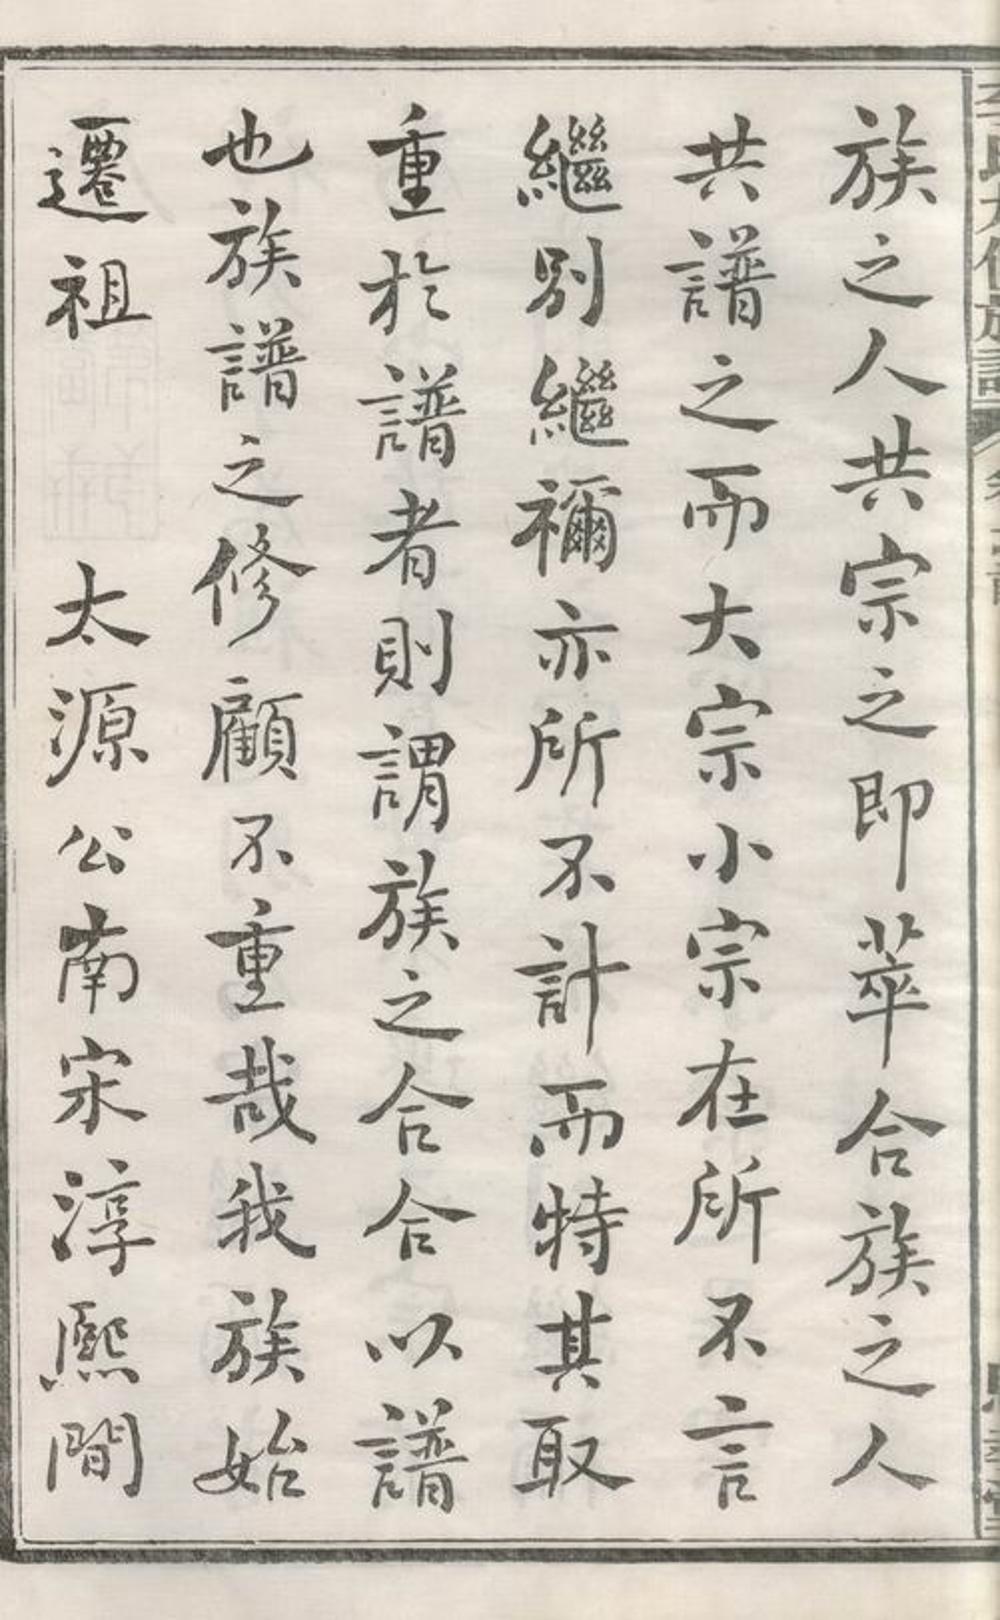 族之人共宗之即萃合族之人
共譜之而大宗小宗在所不言
繼別繼禰亦所不計而特其取
重於譜者則謂族之合合以譜
也族譜之修顧不重哉我族始
遷祖　太源公南宋淳熙間